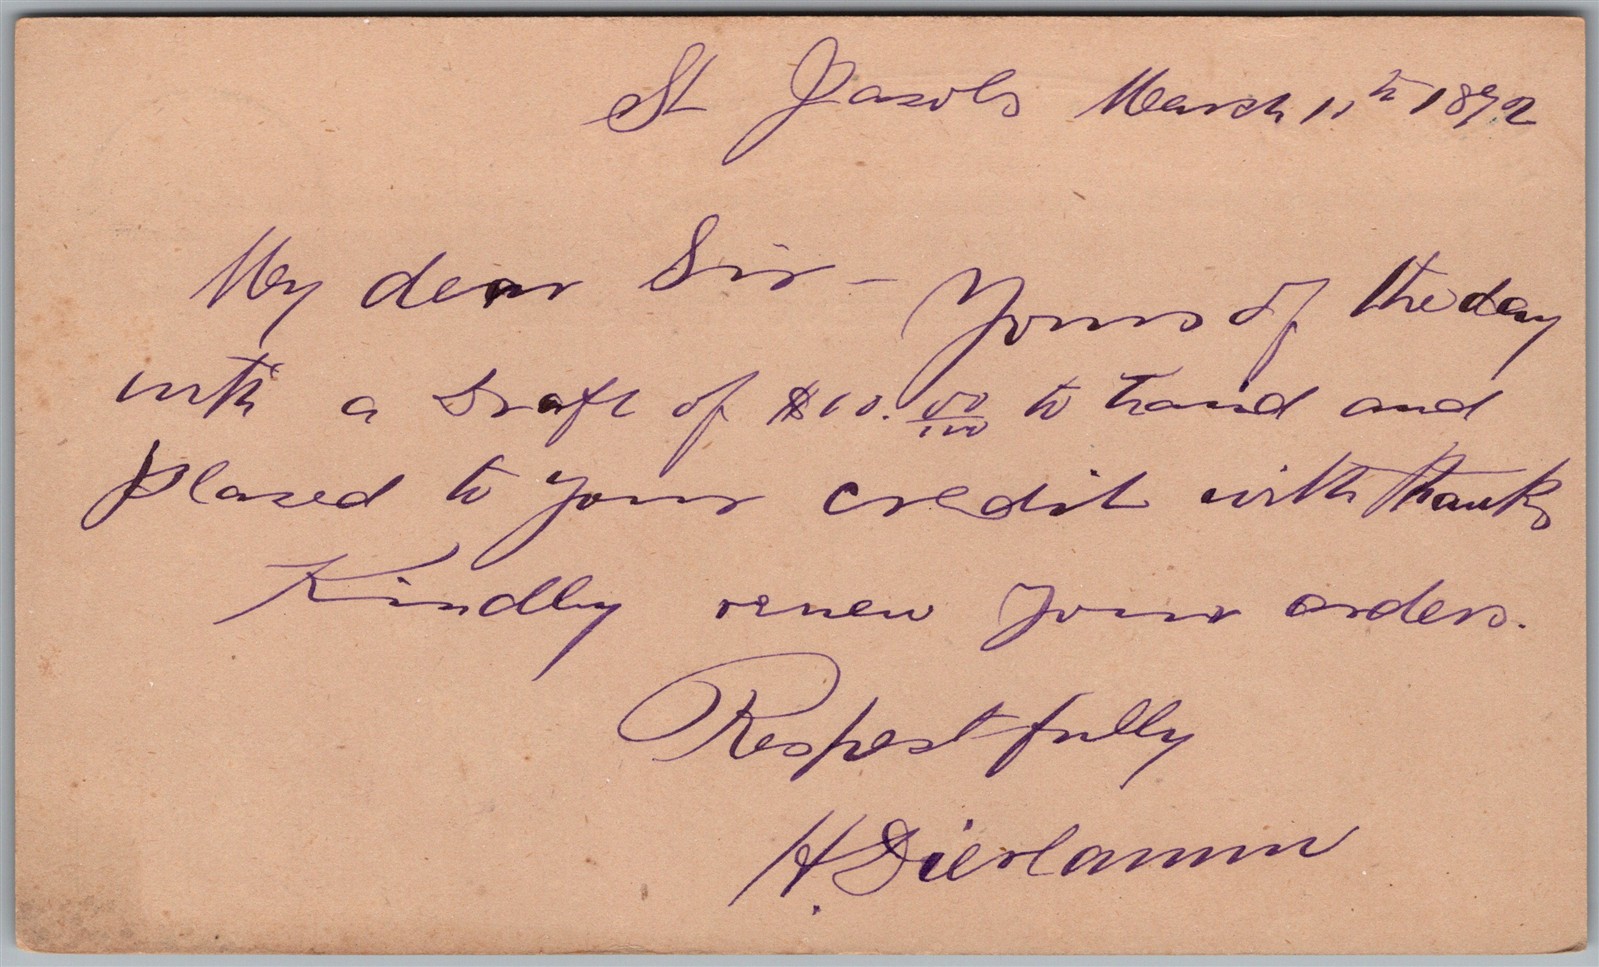 St Jacobs March 11th 1892
My dear Sir – Yours of the day
with a Draft of $10. 00/100 to hand and
placed to your credit with thanks
Kindly renew your orders.
Respectfully
H. Dierlamm